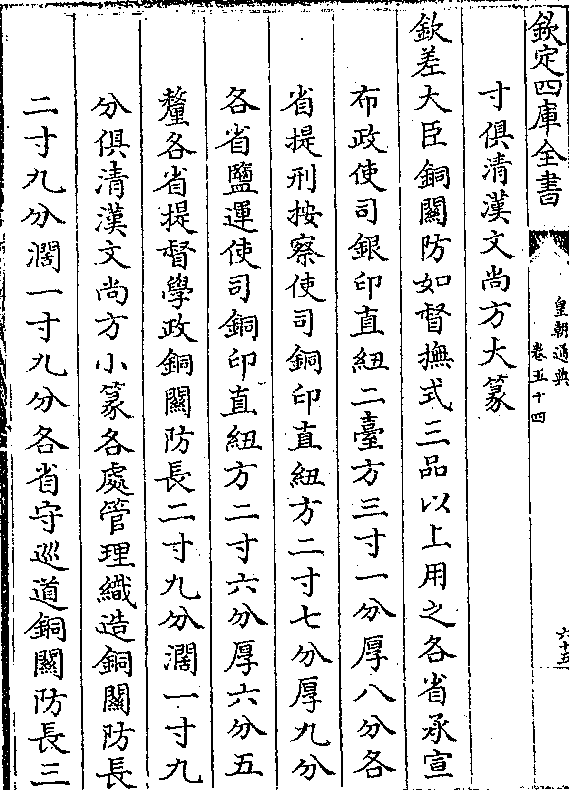 欽定四庫全書
皇朝通典
卷五十四
六十五
寸俱清漢文尚方大篆
欽差大臣銅關防如督撫式三品以上用之各省承宣
布政使司銀印直紐二臺方三寸一分厚八分各
省提刑按察使司銅印直紐方二寸七分厚九分
各省鹽運使司銅印直紐方二寸六分厚六分五
釐各省提督學政銅關防長二寸九分濶一寸九
分俱清漢文尚方小篆各處管理織造銅關防長
二寸九分濶一寸九分各省守巡道銅關防長三